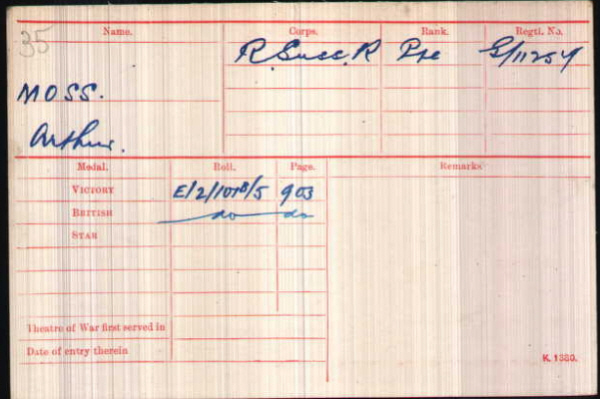 35
Name. Corps. Rank. Regtl. No.
R. Suss. R Pte G/11254
MOSS.
Arthur.
Medal. Roll. Page. Remarks
VICTORY E/2/107B/5 903
BRITISH do do
STAR
Theatre of War first served in
Date of entry therein
K. 1380.